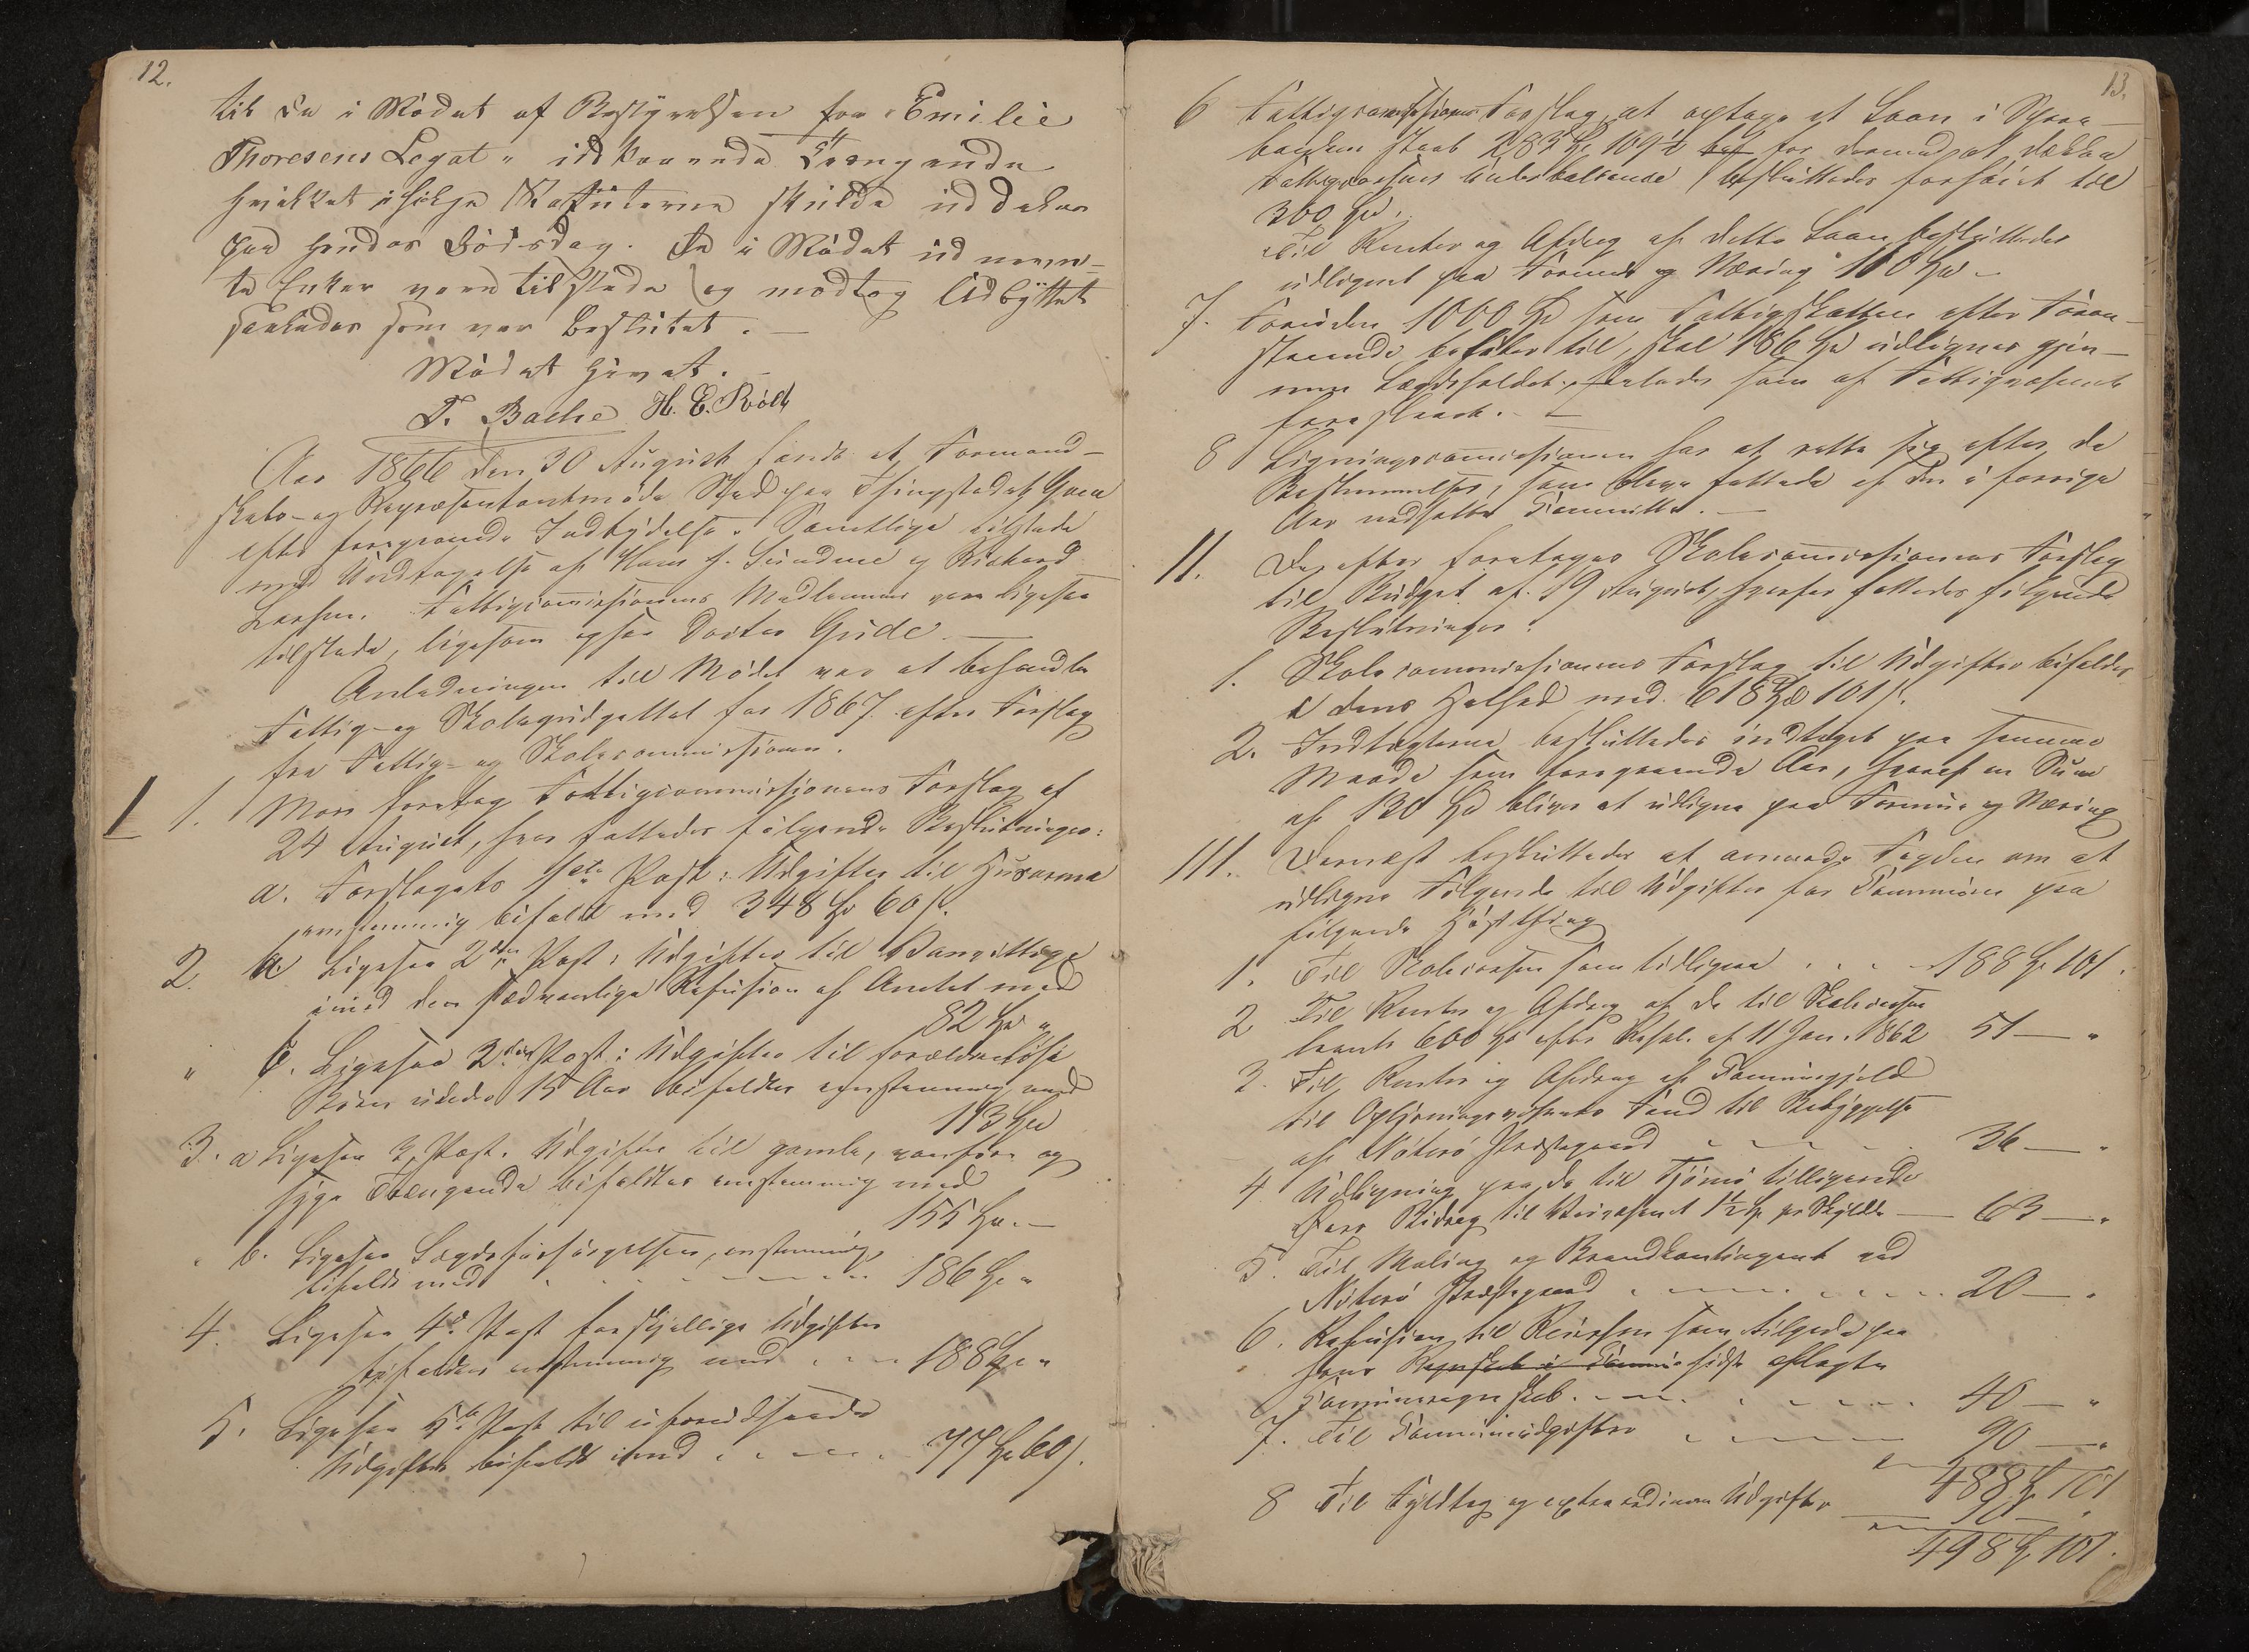 12.
til de i Mödet af Bestyrelsen for "Emilie
Thoresens Legat" tilkommende Trængende
hvilket ifølge Statuterne skulde uddeles
paa hendes Födsdag. De i Mödet ud nævn-
te Enker vare tilstede og modtog Udbyttet
saaledes som var besluttet. —
Mödet hævet. —
T. Bache H. E. Röd
Aar 1866 den 30 August holdt et Formand-
skabs- og Repræsentantmöde Sted paa Thingstedet
efter foregaaende Indbydelse. Samtlige tilstede
med Undtagelse af Hans J. Sundene og Rikard
Larsen. Fattigcommissionens Medlemmer vare ligesaa
tilstede, ligesom ogsaa Doctor Gude. —
Anledningen til Mödet var at behandle
Fattig- og Skolebudgettet for 1867 efter Forslag
fra Fattig- og Skolecommissionen.
I 1. Man foretog Fattigcommissionens Forslag af
24 August, hvor fattedes fölgende Beslutninger:
a. Forslagets 1ste Post: Udgifter til Husarme
enstemmig bifaldt med 348 Spd 60 s.
2. a. Ligesaa 2den Post: Udgifter til Vanvittige
imod den sædvanlige Refusion af Amtet med
82 Spd "
" b. Ligesaa 2den Post: Udgifter til forældrelöse
Börn under 15 Aar bifaldtes enstemmig med
113 Spd
3. a Ligesaa 3. Post. Udgifter til gamle, vanföre og
syge Trængende bifaldtes enstemmig med
155 Spd. —
" b. Ligesaa Lægdsforsörgelsen, enstemmig
bifaldt med 186 Spd "
4. Ligesaa 4de Post forskjellige Udgifter
bifaldtes enstemmig med 188 Spd "
5. Ligesaa 5te Post til uforudseede
Udgifter bifaldt med 77 Spd 60 s.
13.
6 Fattigcommissionens Forslag, at optage et Laan i Spare-
banken stort 283 Spd 109 s for dermed at dække
Fattigcassens Underballance besluttedes forhöiet til
300 Spd.
Til Renter og Afdrag af dette Laan besluttedes
udlignet paa Formue og Næring 100 Spd —
7. Foruden 1000 Spd som Fattigskatten efter Foran-
staaende belöber til, skal 186 Spd udlignes gjen-
nem Lægdsholdet saaledes som af Fattigvæsenet
foreslaaet. —
8 Ligningscommissionen har at rette sig efter de
Bestemmelser, som bleve fattede af den i forrige
Aar nedsatte Committee. —
II. Derefter foretoges Skolecommissionens Forslag
til Budget af 29 August, hvorfor fattedes fölgende
Beslutninger:
1. Skolecommissionens Forslag til Udgifter bifaldes
i dens Helhed med 618 Spd 101 s.
2. Indtægterne besluttedes indtaget paa samme
Maade som foregaaende Aar, hvoraf en Sum
af 130 Spd bliver at udligne paa Formue og Næring
III. Dernæst besluttedes at anmode Fogden om at
udligne Fölgende til Udgifter for Communen paa
fölgende Höstthing
1. Til Skolecassen som tidligere 188 Spd 101.
2 Til Renter og Afdrag af de til Skolecassen
laante 600 Spd efter Resol. af 11 Jan. 1862 51 — "
3. Til Renter og Afdrag af Communegjeld
til Oplysningsvæsenets Fond til Bebyggelse
af Nöterö Præstegaard 36 — "
4 Udligning paa de til Tjömö tilliggende
Öer Bidrag til Veivæsenet 1½ s pr Skylddr — 63 — "
5. Til Maling og Brandkontingent ved
Nöterö Præstegaard 20 — "
6. Refusion til som tilgode paa
hans Regnskab i Commu sidst aflagte
Communeregnskab 40 — "
7. Til Communeudgifter 90 — "
488 Spd 101
8 Til og extraordinære Udgifter 10 "
498 Spd 101.